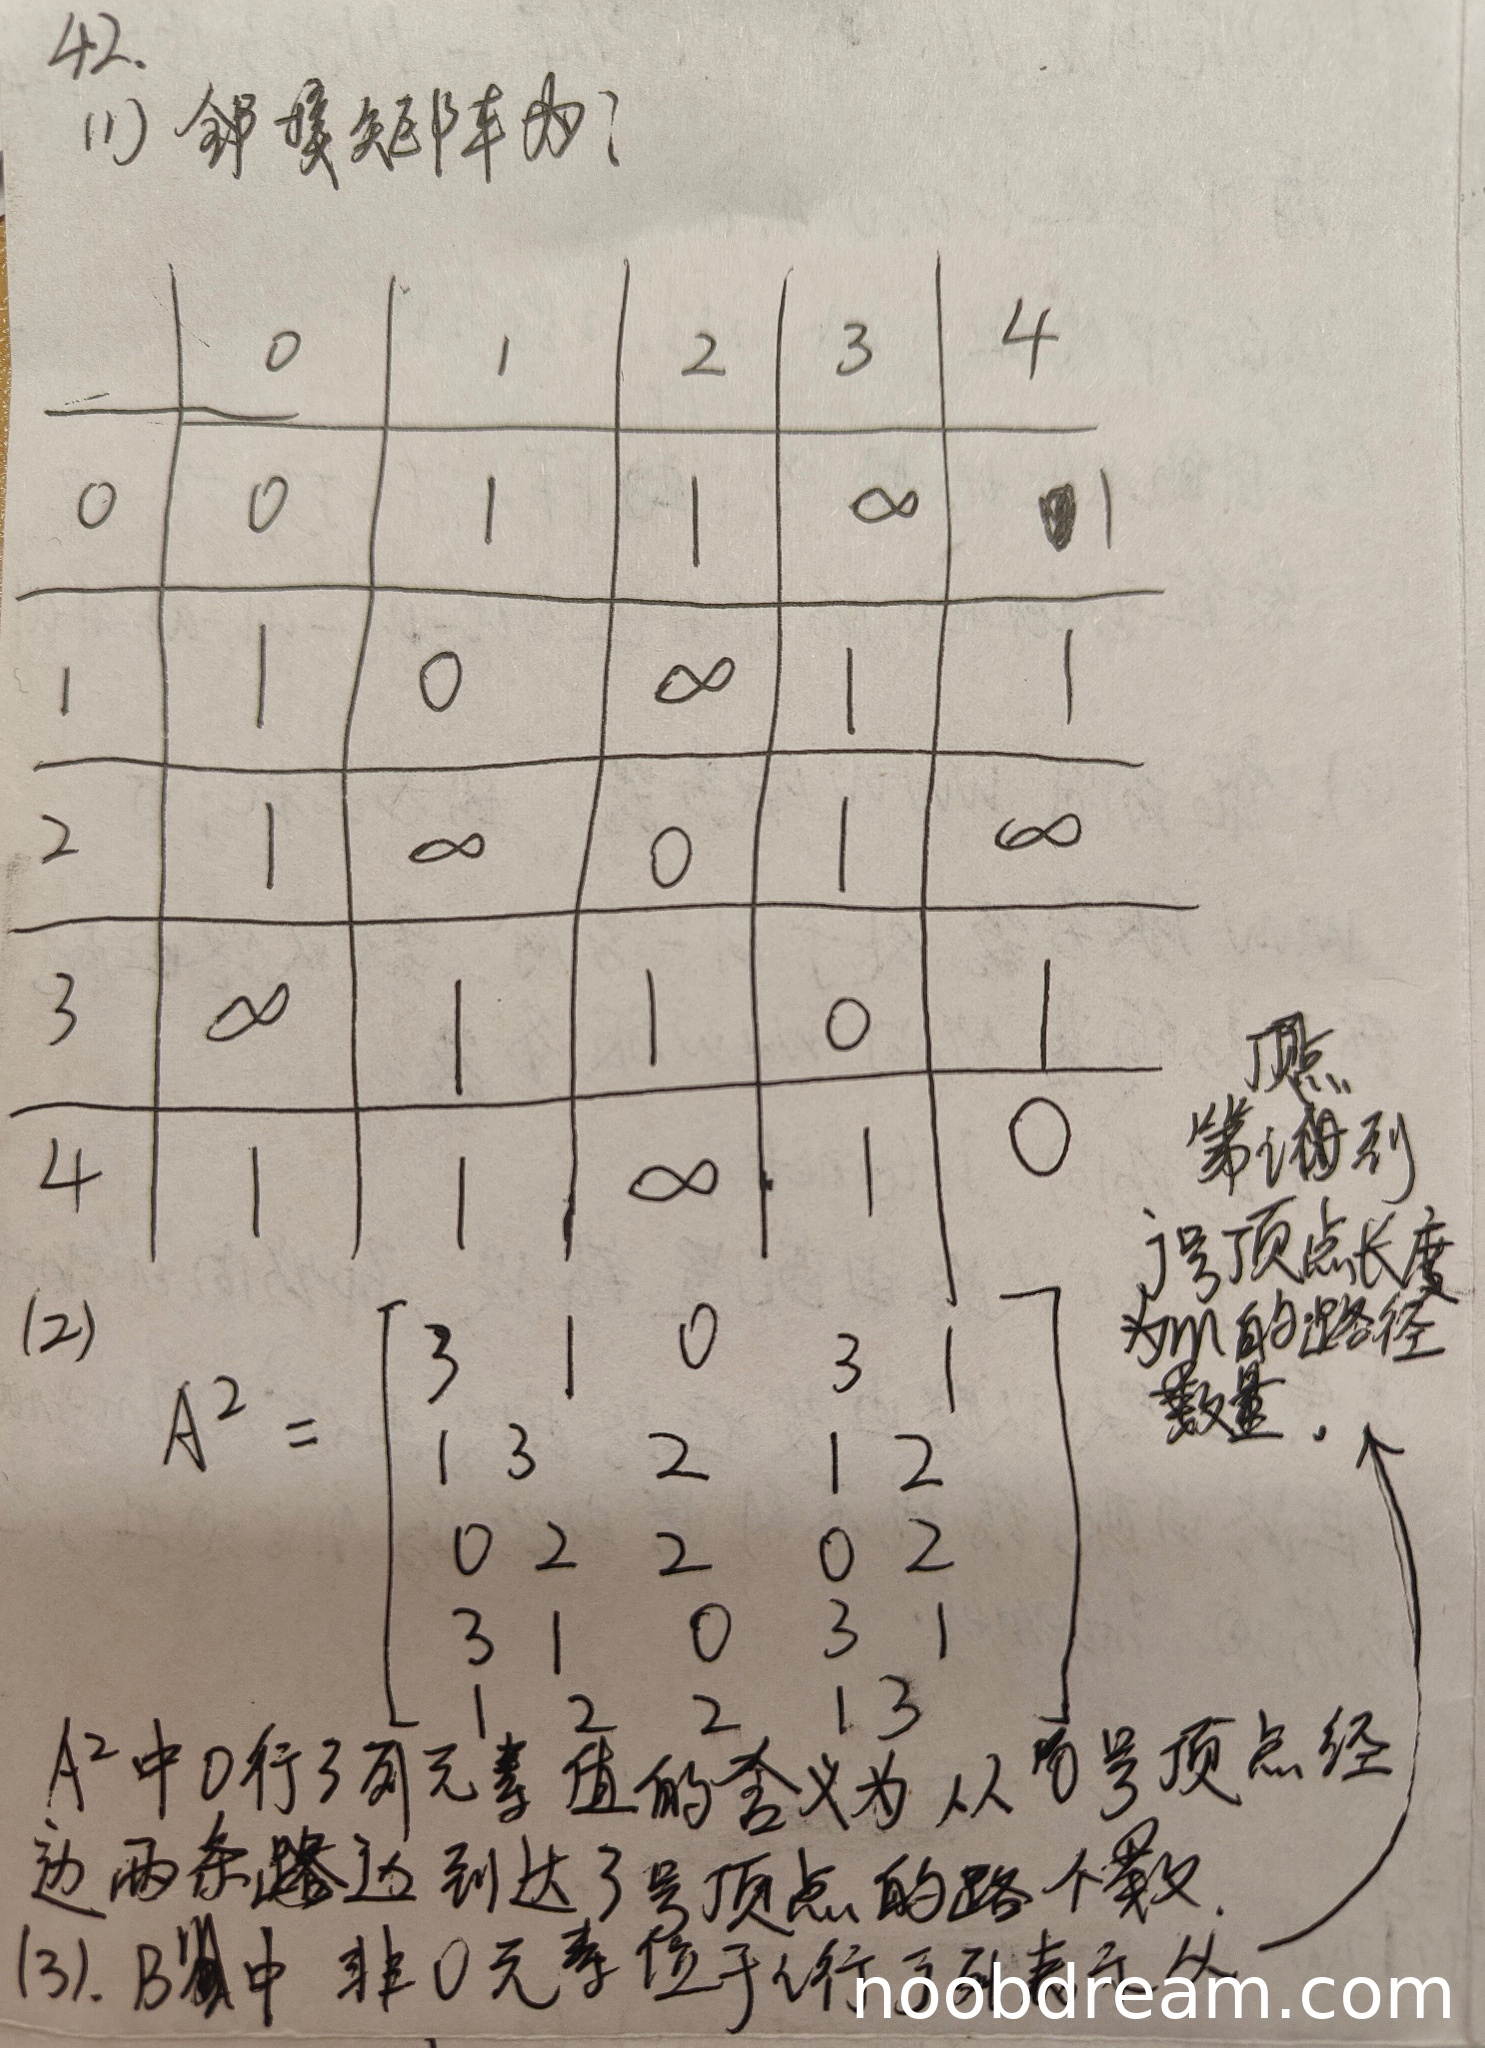 42.
(1) 邻接矩阵为:
0 1 2 3 4
0 0 1 1 ∞ 1
1 1 0 ∞ 1 1
2 1 ∞ 0 1 ∞
3 ∞ 1 1 0 1
4 1 1 ∞ 1 0
(2)
A² =
3 1 0 3 1
1 3 2 1 2
0 2 2 0 2
3 1 0 3 1
1 2 2 1 3
A²中0行3列元素值的含义为从0号顶点经
过两条边到达3号顶点的路个数.
(3). B中非0元素位于i行j列表示从
顶点
第i到
j号顶点长度
为m的路径
数量.
noobdream.com